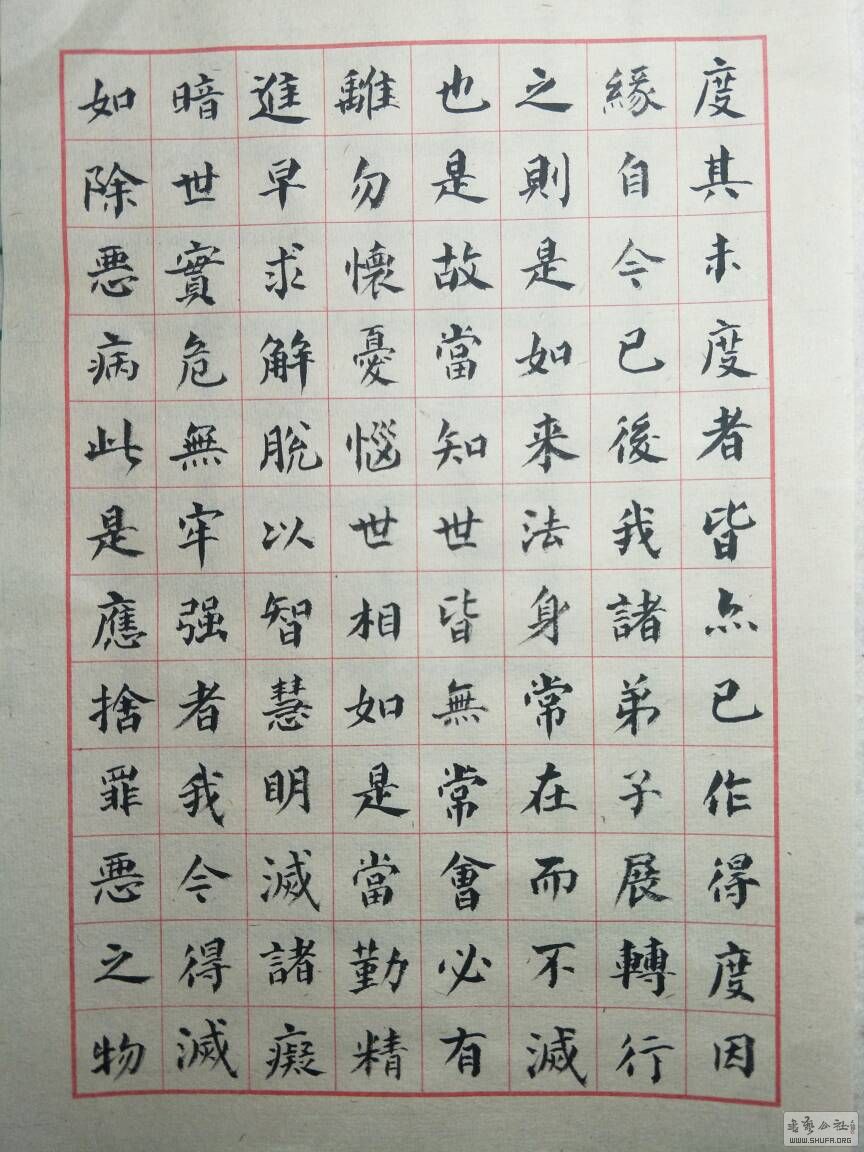 度其未度者皆亦已作得度因
緣自今已後我諸弟子展轉行
之則是如来法身常在而不滅
也是故當知世皆無常會必有
離勿懷憂惱世相如是當勤精
進早求解脫以智慧明滅諸癡
暗世實危無牢强者我今得滅
如除惡病此是應捨罪惡之物
书艺公社
WWW.SHUFA.ORG